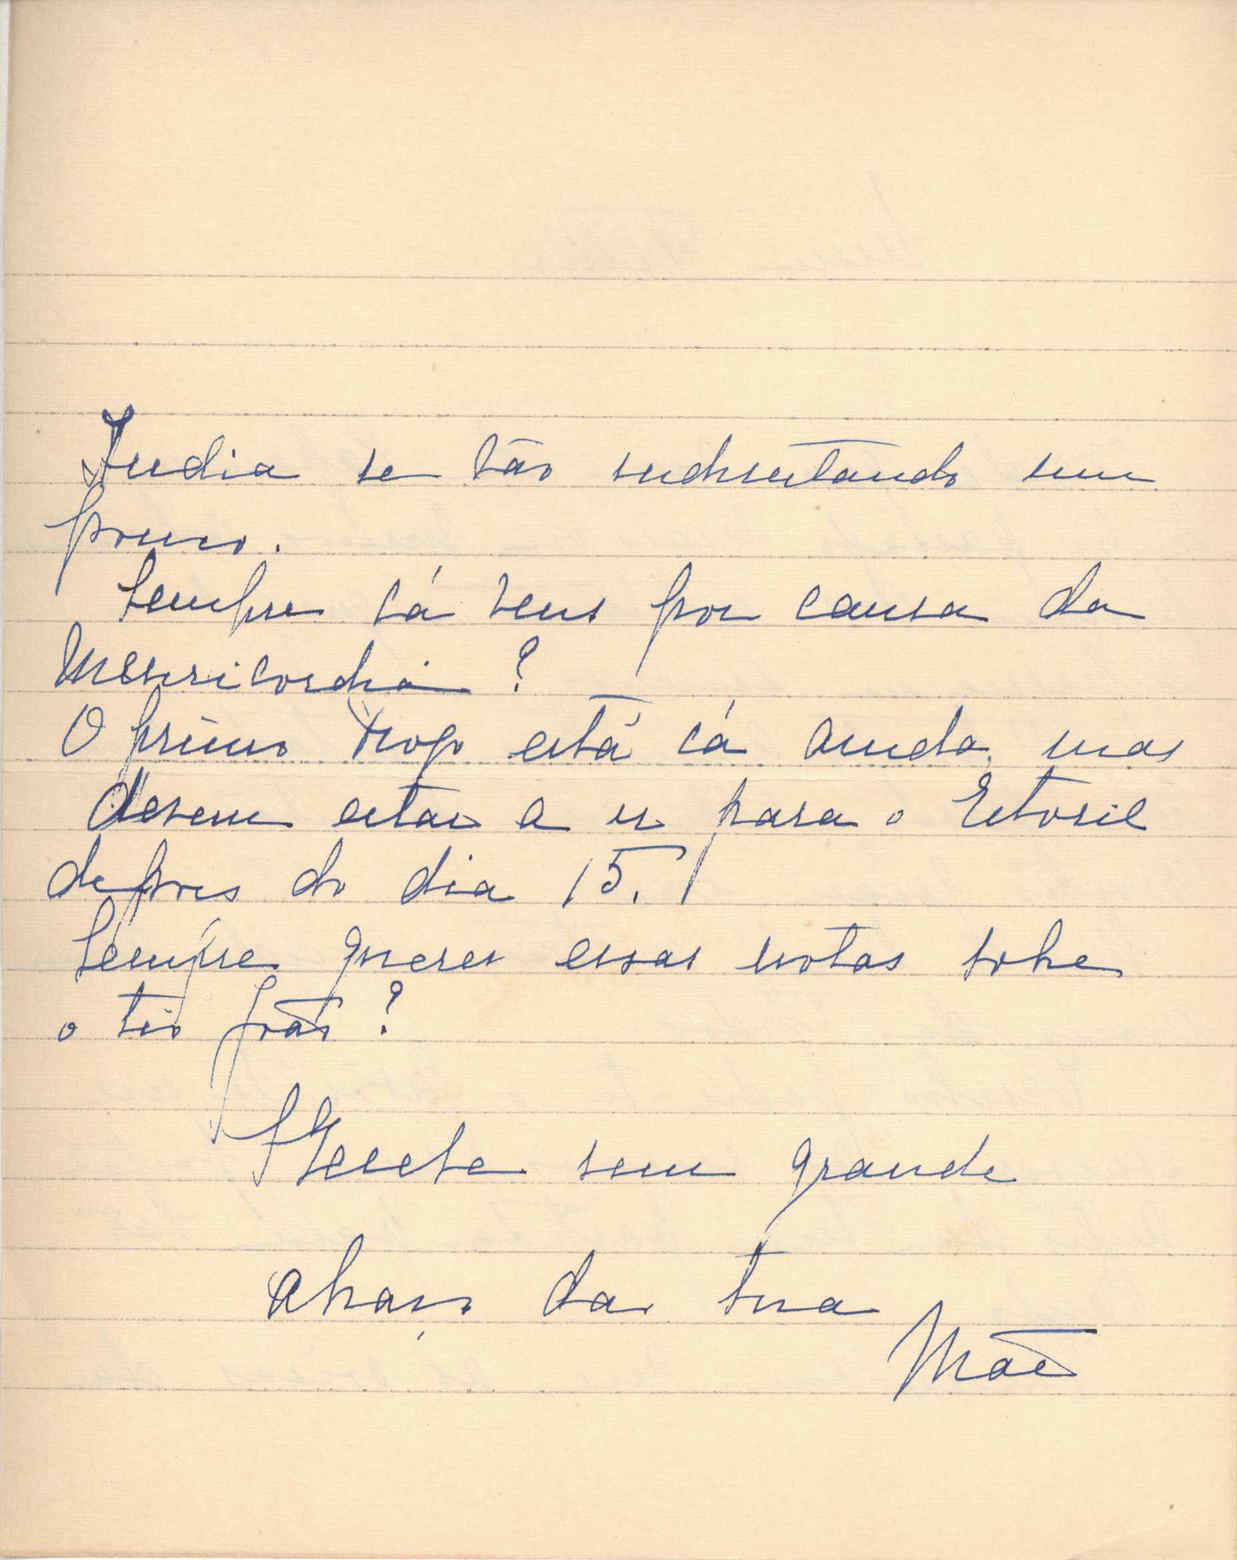 India se vão endireitando um
pouco.
Sempre cá vens por causa da
Misericordia?
O primo está cá ainda, mas
devem estar a ir para o Estoril
depois do dia 15.
Sempre queres essas notas sobre
o tio João?
Recebe um grande
abraço da tua
Mãe